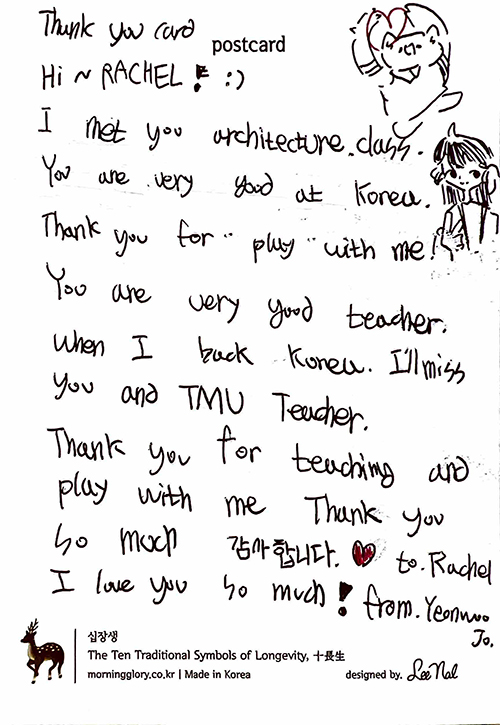 Thank you card
postcard
Hi ~ RACHEL ! :)
I met you architecture.class.
You are very good at Korea.
Thank you for "play" with me!
You are very good teacher.
When I back Korea. I'll miss
you and TMU Teacher.
Thank you for teaching and
play with me Thank you
so much 감사합니다. ♥ to. Rachel
I love you so much! from. Yeonwoo
Jo.
십장생
The Ten Traditional Symbols of Longevity, 十長生
morningglory.co.kr | Made in Korea
designed by. Lee Nal